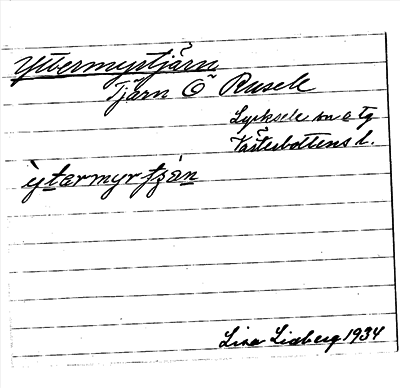 Yttermyrtjärn
Tjärn Ö Rusele
Lycksele sn o tg
Västerbottens l.
ỳtərmyrtʒàn
Lisa Lidberg 1934